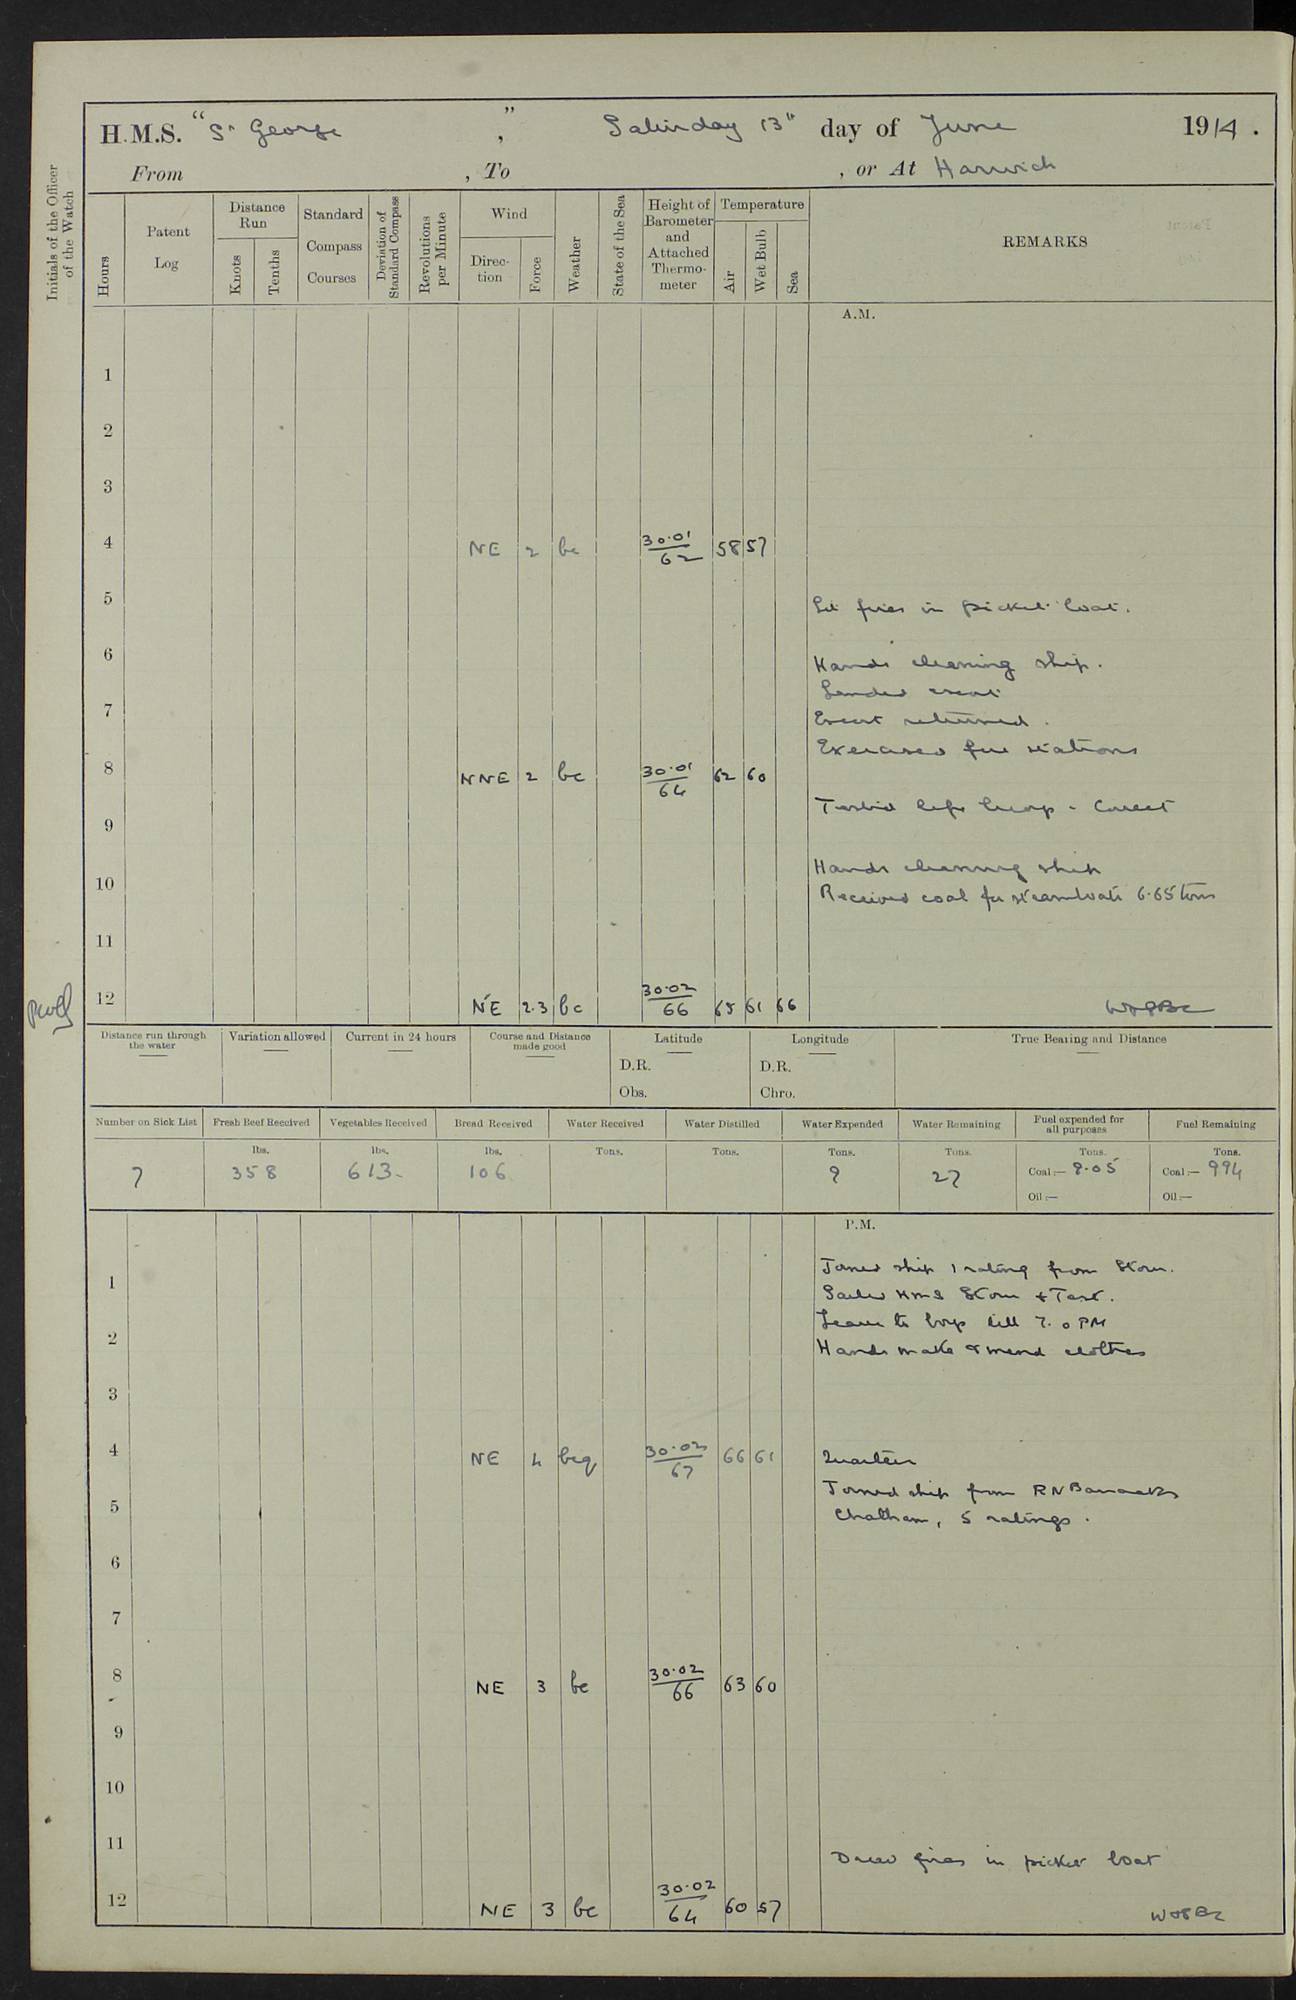 H.M.S. "St George", Saturday 13th day of June 1914.
From , To , or At Harwich
Initials of the Officer of the Watch
Hours
Patent Log
Distance Run
Knots
Tenths
Standard Compass Courses
Deviation of Standard Compass
Revolutions per Minute
Wind
Direction
Force
Weather
State of the Sea
Height of Barometer and Attached Thermometer
Temperature
Air
Wet Bulb
Sea
REMARKS
A.M.
1
2
3
4 NE 2 bc 30.01 62 58 57
5 Lit fires in picket boat.
6 Hands cleaning ship.
Landed escort
7 Escort returned.
Exercised fire stations
8 NNE 2 bc 30.01 64 62 60
Tested life buoys - Correct
9
Hands cleaning ship
10 Received coal for steamboats 6.65 tons
11
12 NE 2.3 bc 30.02 66 65 61 66
Distance run through the water
Variation allowed
Current in 24 hours
Course and Distance made good
Latitude
D.R.
Obs.
Longitude
D.R.
Chro.
True Bearing and Distance
Number on Sick List
Fresh Beef Received
Vegetables Received
Bread Received
Water Received
Water Distilled
Water Expended
Water Remaining
Fuel expended for all purposes
Fuel Remaining
lbs. lbs. lbs. Tons. Tons. Tons. Tons. Tons. Tons.
7 358 613 106 9 27 Coal:— 8.05 Coal:— 994
Oil:— Oil:—
P.M.
Joined ship 1 rating from Stour.
1
Sailed HMS Stour & Test.
Leave to boys till 7.0 PM
2 Hands make & mend clothes
3
4 NE 4 bcq 30.02 67 66 61 Quarters
Joined ship from RN Barracks
5 Chatham, 5 ratings.
6
7
8 NE 3 bc 30.02 66 63 60
9
10
11 Drew fires in picket boat
12 NE 3 bc 30.02 64 60 57